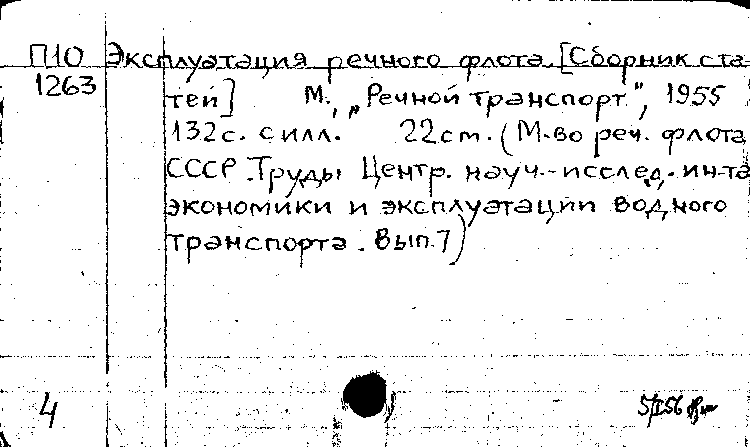 П10 Эксплуатация речного флота. [Сборник ста-
1263 тей] М., „Речной транспорт", 1955
132с. с илл. 22cm. (М-во реч. флота
СССР. Труды Центр. науч.-исслед. ин-та
экономики и эксплуатации водного
транспорта. Вып.7)
4